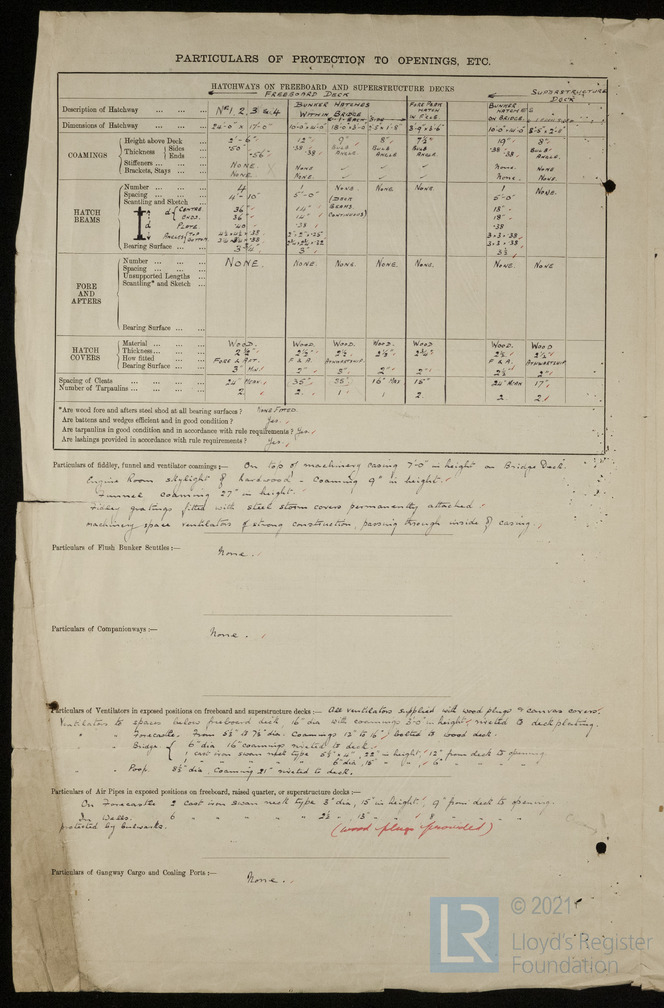 PARTICULARS OF PROTECTION TO OPENINGS, ETC.
HATCHWAYS ON FREEBOARD AND SUPERSTRUCTURE DECKS
FREEBOARD DECK SUPERSTRUCTURE DECK
Description of Hatchway ... ... ... Nos 1, 2, 3 & 4 BUNKER HATCHES WITHIN BRIDGE FORE PEAK HATCH IN F'CLE BUNKER HATCHES ON BRIDGE
Dimensions of Hatchway ... ... ... 24'-0" × 17'-0" 10'-0" × 4'-0" 18'-0 × 3'-0 3'-9" × 3'-6" 10'-0" × 4'-0
COAMINGS
Height above Deck ... 2'-6" 12" 9" 8" 7½" 19" 8"
Thickness Sides .50" .38 BULB ANGLE BULB ANGLE BULB ANGLE .38 BULB ANGLE
Ends .56" .38 .38
Stiffeners ... ... NONE. NONE None. NONE
Brackets, Stays ... NONE NONE. None. NONE
HATCH BEAMS
Number ... ... ... 4 1 NONE. NONE NONE. 1 NONE.
Spacing ... ... ... 4'-10" 5'-0" (DECK BEAMS CONTINUOUS) 5'-0"
Scantling and Sketch ...
d CENTRE 36" 14" 18"
ENDS. 36" 14" 18"
PLATE .40 .38 .38
ANGLES TOP 3 × 3 × .38
BOTTOM 3 × 3 × .38
Bearing Surface ... ... 3¾" 3" 3½
FORE AND AFTERS
Number ... ... ... NONE. NONE. NONE. NONE. NONE. NONE. NONE
Spacing ... ... ...
Unsupported Lengths ...
Scantling* and Sketch ...
Bearing Surface ... ...
HATCH COVERS
Material ... ... ... WOOD. WOOD. WOOD. WOOD. WOOD WOOD. WOOD
Thickness ... ... ... 2½" 2½" 2½ 2½" 2½" 2½ 2½"
How fitted ... ... FORE & AFT. F & A. ATHWARTSHIP F & A. ATHWARTSHIP.
Bearing Surface ... ... 3" MIN. 2" 3" 2" 2" 2½" 2"
Spacing of Cleats ... ... ... ... 24" MEAN 35" 35" 16" 15" 24" MEAN 17"
Number of Tarpaulins ... ... ... ... 2 2. 1 1 2. 2 2
*Are wood fore and afters steel shod at all bearing surfaces? NONE FITTED.
Are battens and wedges efficient and in good condition? Yes.
Are tarpaulins in good condition and in accordance with rule requirements? Yes.
Are lashings provided in accordance with rule requirements? Yes.
Particulars of fiddley, funnel and ventilator coamings:— On top of machinery casing 7'-0" in height on Bridge Deck.
Engine Room skylight of hardwood - coaming 9" in height.
Funnel coaming 27" in height.
Fidley gratings fitted with steel storm covers permanently attached
machinery space ventilators of strong construction, passing through inside of casing
Particulars of Flush Bunker Scuttles:—
None.
Particulars of Companionways:—
None.
Particulars of Ventilators in exposed positions on freeboard and superstructure decks:— All ventilators supplied with wood plugs & canvas covers.
Ventilators to spaces below freeboard deck, 16" dia with coamings 3'-0" in height riveted to deck plating.
" " Forecastle. From 5½" to 7½" dia. Coamings 12" to 16" bolted to wood deck.
" " Bridge. 6" dia 16" coamings riveted to deck
1 cast iron swan neck type 5½" × 4", 22" in height, 12" from deck to opening
" " " " " 6" dia, 15" " " 6" " " "
" " Poop. 8½" dia, Coaming 21" riveted to deck.
Particulars of Air Pipes in exposed positions on freeboard, raised quarter, or superstructure decks:—
On Forecastle 2 cast iron swan neck type 3" dia, 15" in height, 9" from deck to opening.
In Wells. 6 " " " " " 2½ " 13" " 8 " " "
protected by bulwarks. (wood plugs provided)
Particulars of Gangway Cargo and Coaling Ports:—
None.
© 2021
LR
Lloyd's Register
Foundation